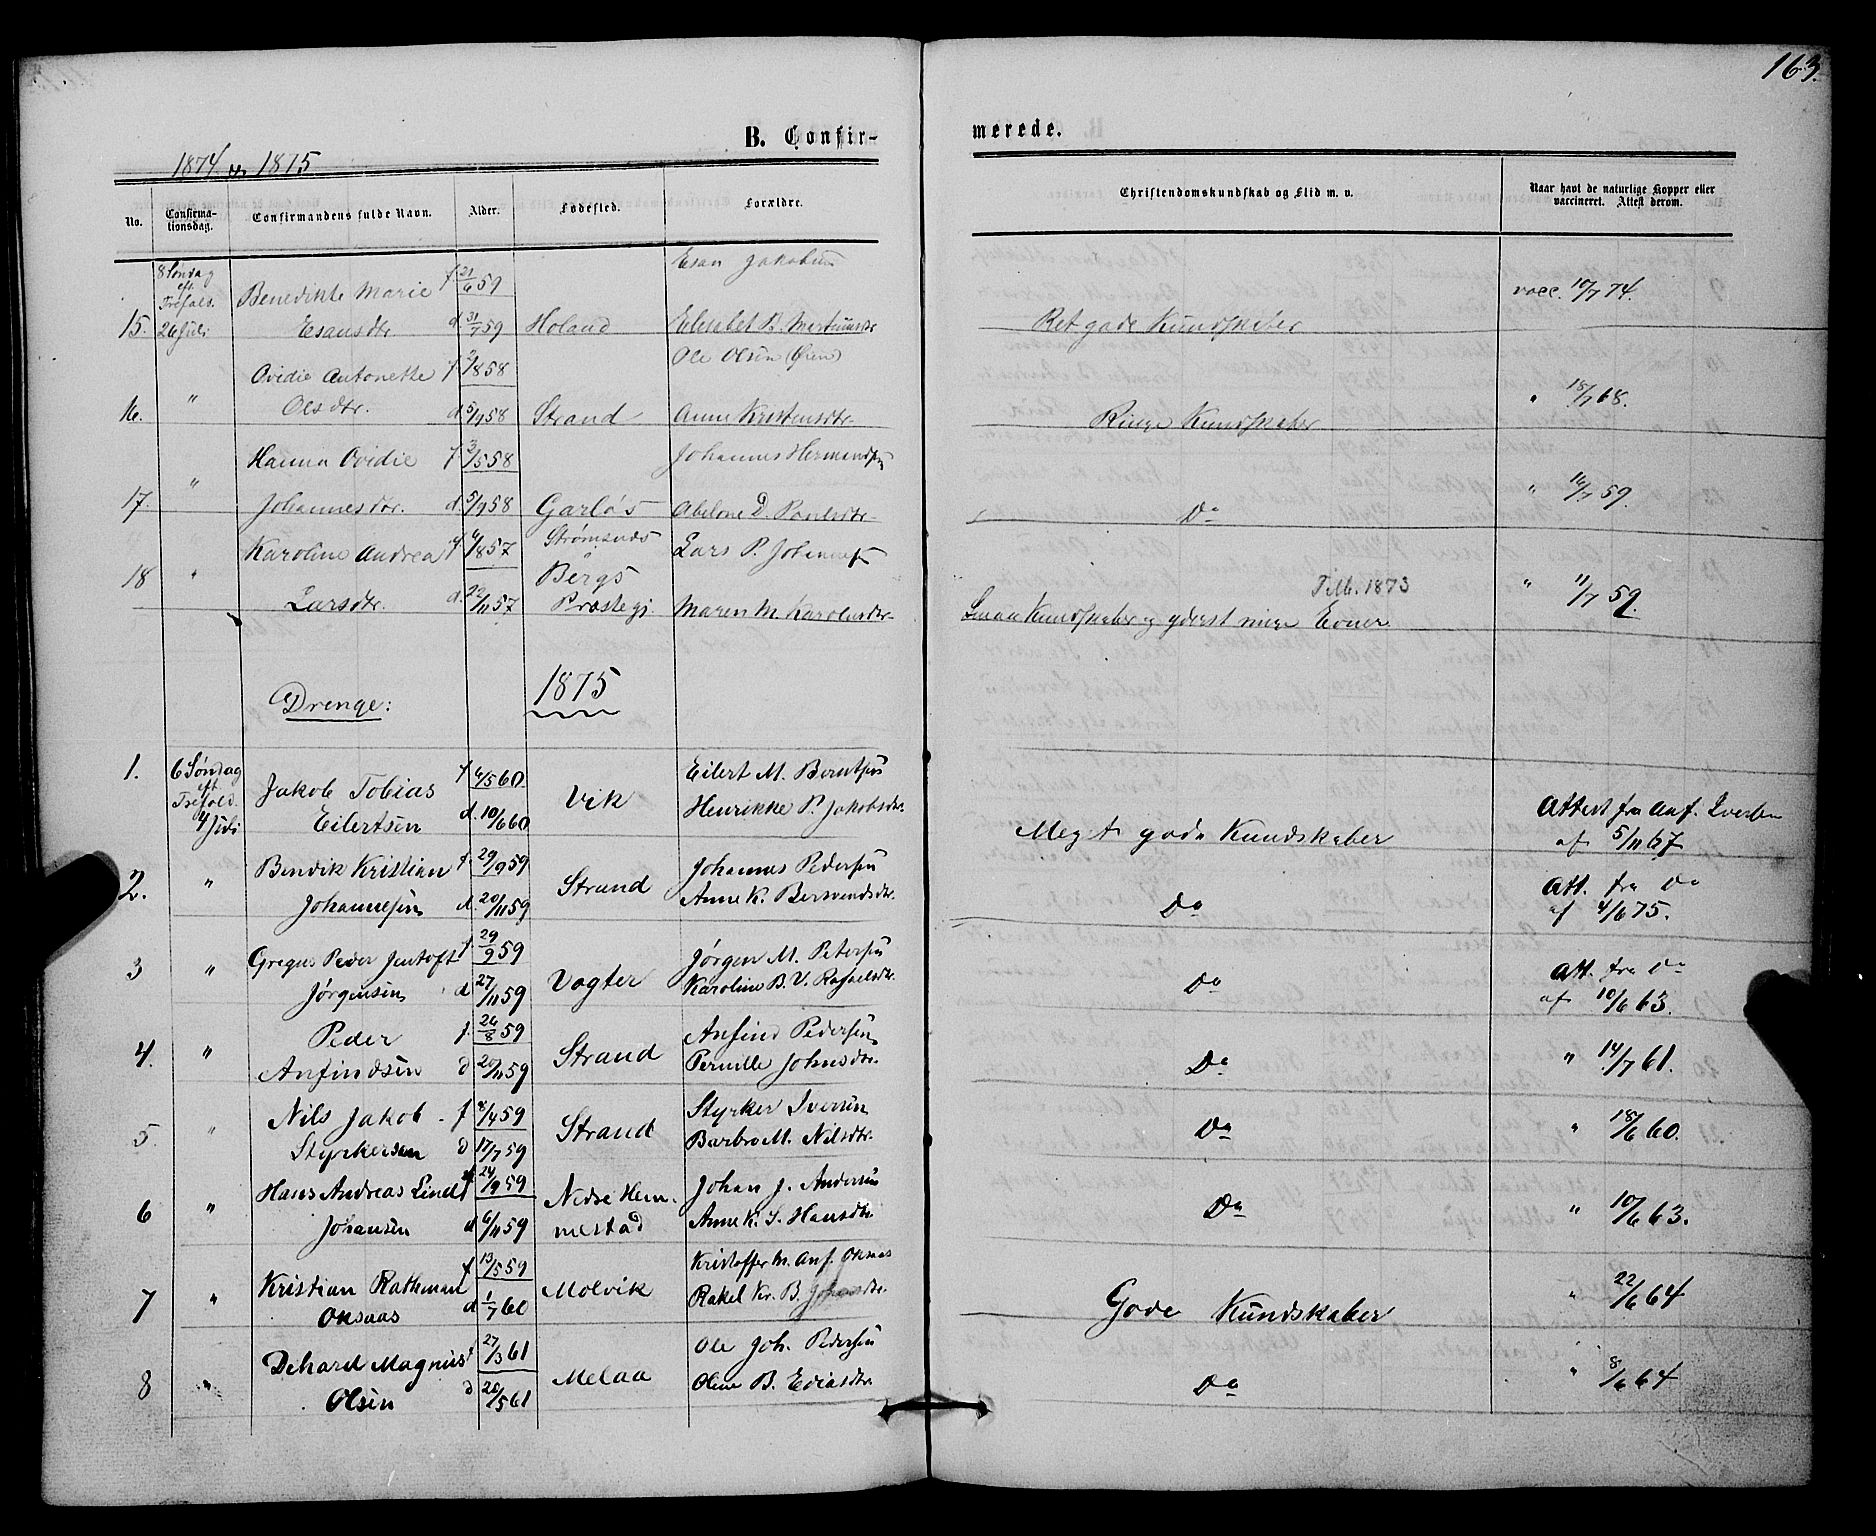 163.
B. Confir-
merede.
1874 & 1875
No.
Confirma-
tionsdag.
Confirmandens fulde Navn.
Alder.
Fødested.
Forældre.
Christendomskundskab og Flid m. v.
Naar havt de naturlige Kopper eller
vaccineret. Attest derom.
8 Søndag
eft.
Trefold.
15. 26 Juli
Benedikte Marie f 21/6 59
Esansdtr. d. 31/7 59 Holand
Esan Jakobsen
Elesabet B.
Ret gode Kundskaber
vacc. 10/7 74.
Ovidie Antonette f 2/8 58
16. " Olsdtr. d. 5/9 58 Strand
Ole Olsen (Øien)
Anne Kristensdtr.
Ringe Kundskaber
" 18/7 68.
Hanna Ovidie f 3/5 58
17. " Johannesdtr. d. 5/9 58 Garløs
Johannes Hermandsen
Abelone D. Paulsdtr.
Do
" 16/7 59.
Karoline Andrea f. 6/8 57
18 " Larsdtr. d. 22/11 57
Strømsnes
Bergs
Præstegj.
Lars P. Johannesen
Maren M. Karolusdtr.
Tilb. 1873
Smaa Kundskaber og yderst ringe Evner
" 11/7 59.
1875
Drenge:
1. 6 Søndag
eft
Trefold.
4 Juli
Jakob Tobias f 4/5 60
Eilertsen d. 10/6 60
Vik
Eilert M. Berntsen
Henrikke P. Jakobsdtr.
Meget gode Kundskaber
Attest fra Anf. Iversen
af 5/11 67
2. " Bendik Kristian f. 29/9 59
Johannesen d. 20/11 59
Strand
Johannes Pedersen
Anne K. Bersvendsdtr.
Do
Att. fra Do
af 4/6 75.
3 " Gregus Peder Jentoft f. 29/9 59
Jørgensen d 27/11 59
Vogter
Jørgen M. Petersen
Karoline B. V. Rafaelsdtr.
Do
Att. fra Do
af 10/6 63.
4. " Peder f. 26/8 59
Anfindsen d 20/11 59
Strand
Anfind Pedersen
Pernille Johnsdtr.
Do
" 14/7 61.
5. " Nils Jakob f 8/4 59
Styrkersen d 17/7 59
Strand
Styrker Iversen
Barbro M. Nilsdtr.
Do
" 18/6 60.
6 " Hans Andreas Lind f 24/9 59
Johansen d 6/11 59
Nedre Hem-
mestad
Johan J. Andersen
Anne K. S. Hansdtr.
Do
" 10/6 63.
7 " Kristian Rathman f 13/5 59
Oksaas d 1/7 60
Molvik
Kristoffer M. Anf. Oksaas
Rakel Kr. B. Johnsdtr.
Gode Kundskaber
" 22/6 64
8 " Dehard Magnus f 27/3 61
Olsen d 20/5 61
Melaa
Ole Joh. Pedersen
Oline B. Ediasdtr.
Do
" 8/6 64